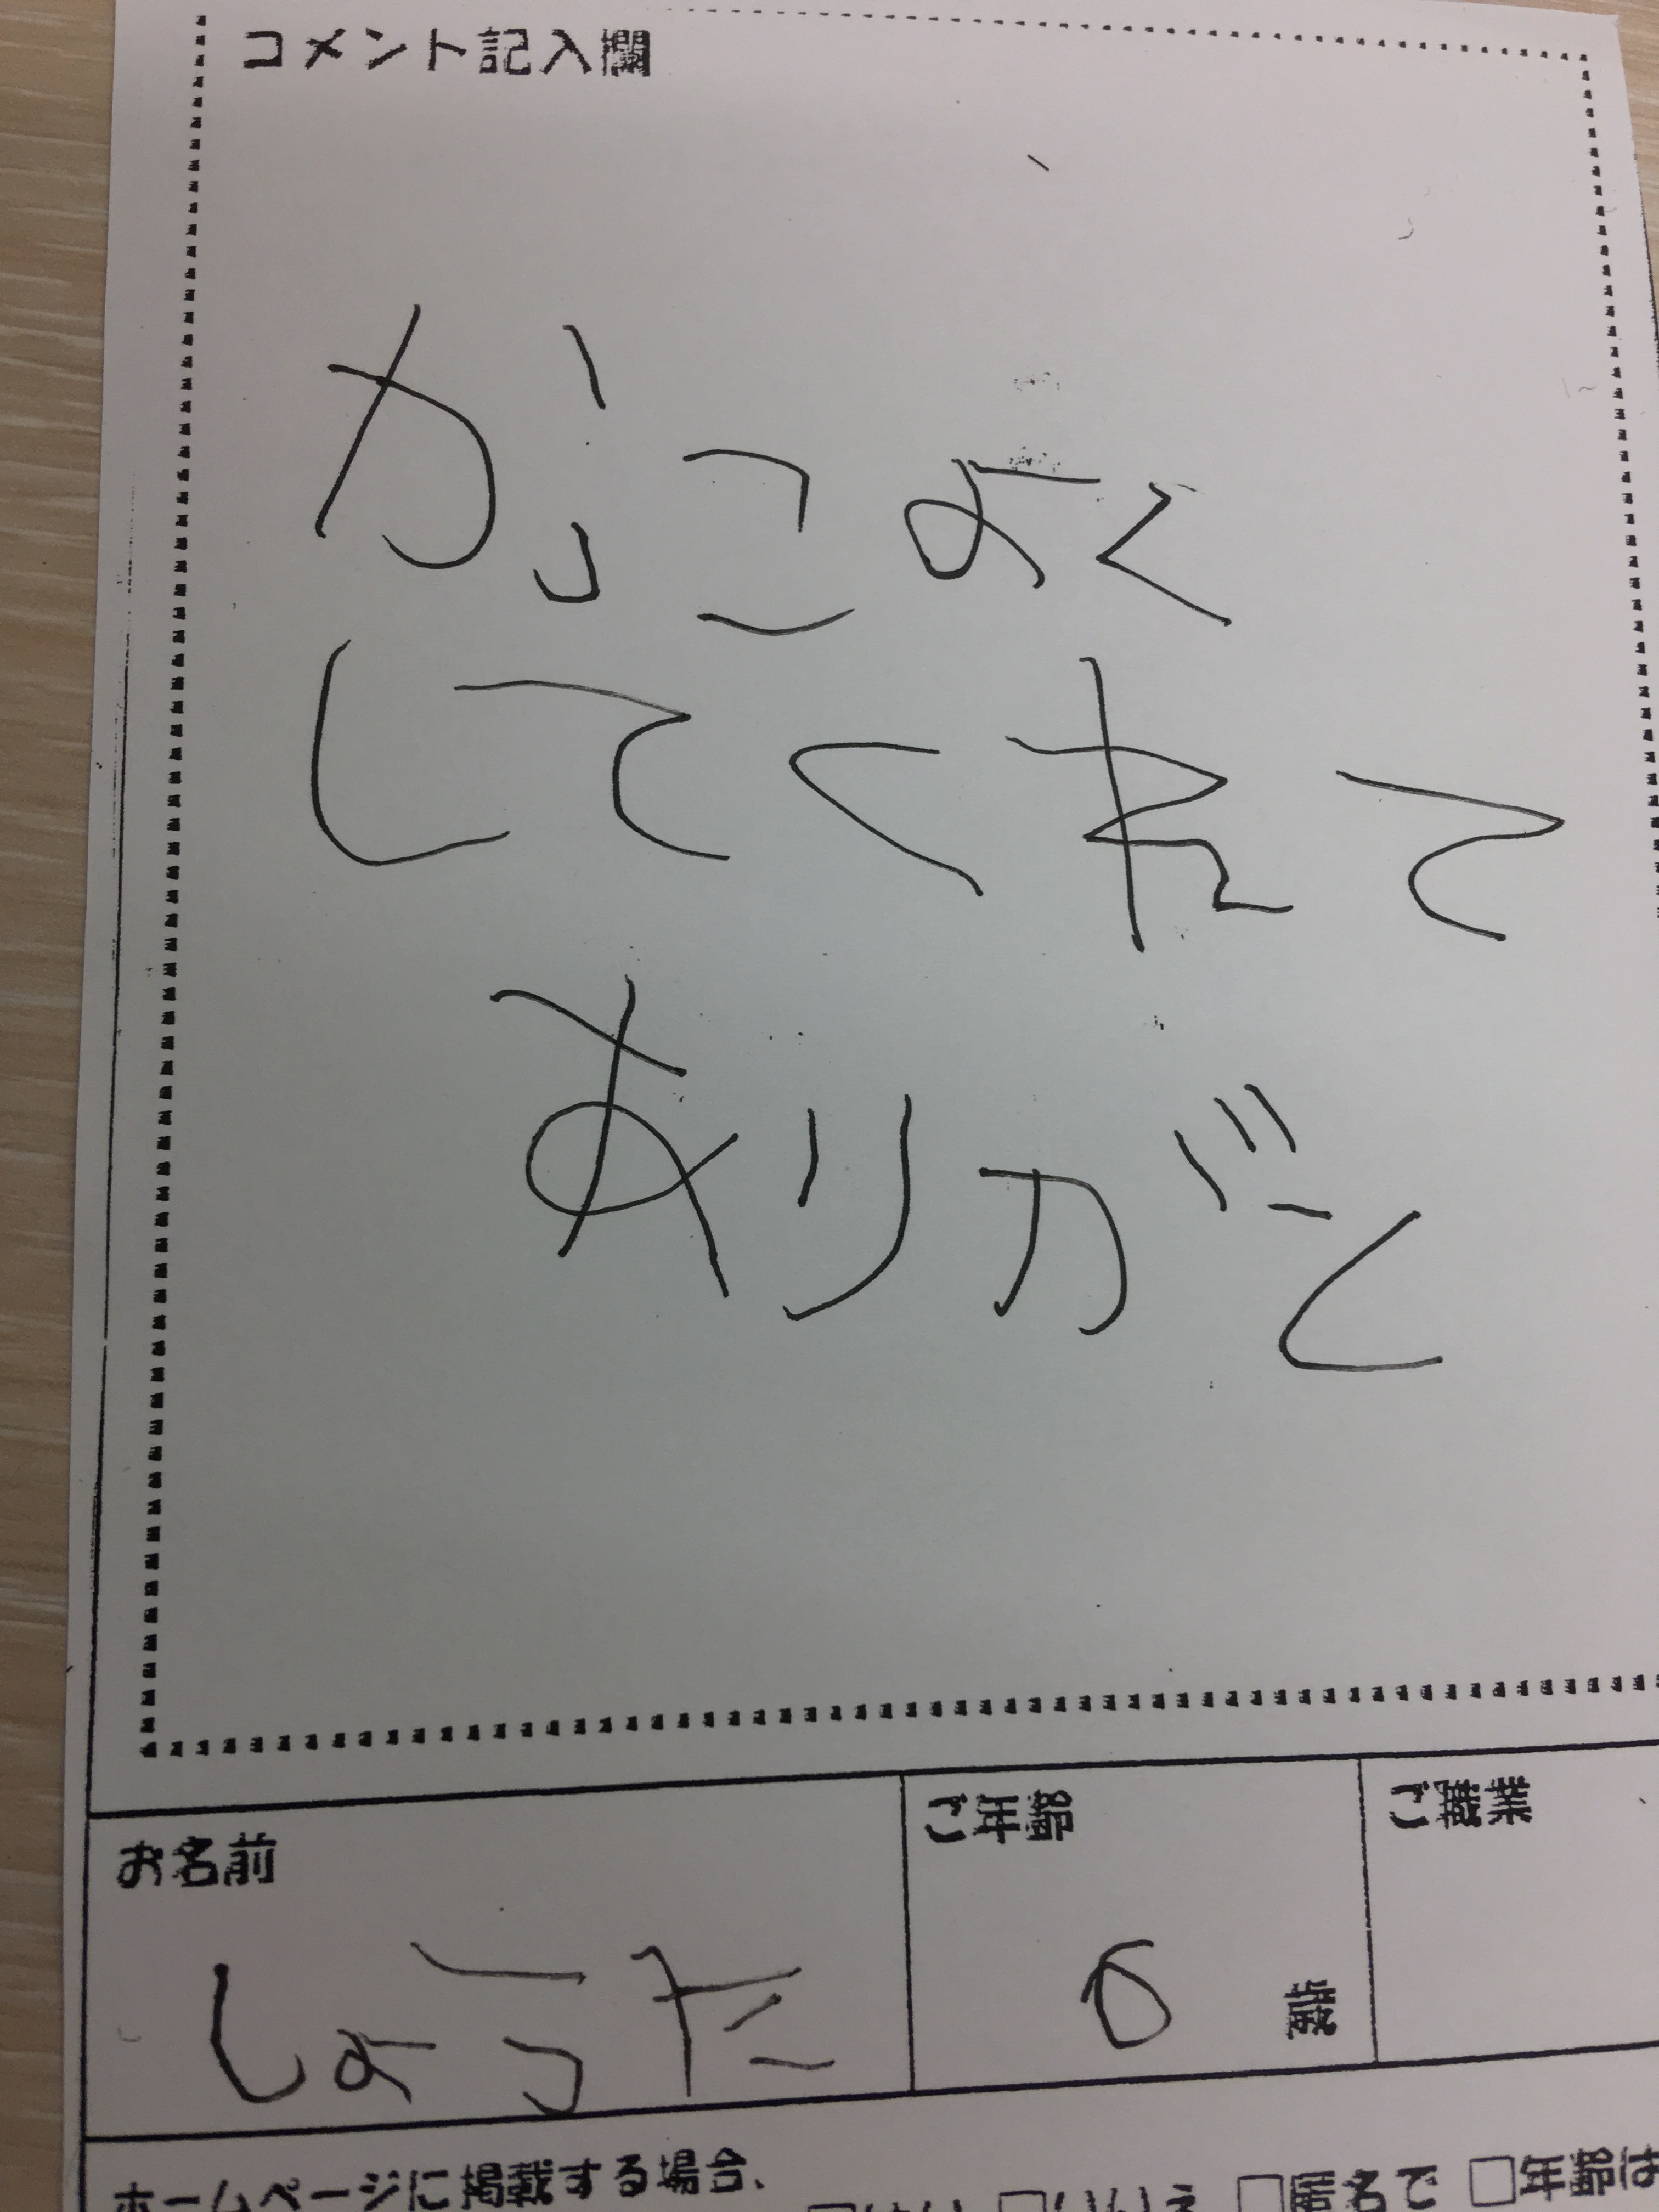 コメント記入欄
かっこよく
してくれて
ありがと
お名前
しょうた
ご年齢
6 歳
ご職業
ホームページに掲載する場合、 □はい □いいえ □匿名で □年齢は